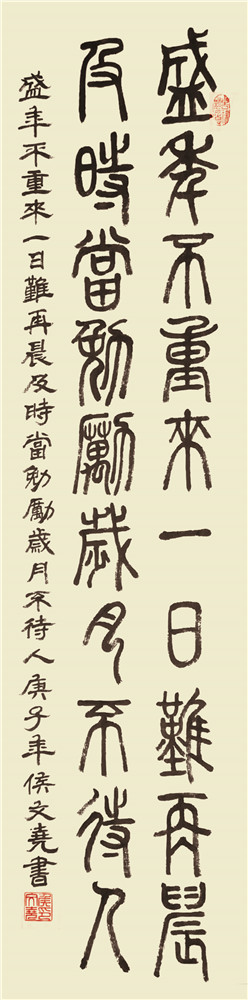 盛年不重來一日難再晨
及時當勉勵歲月不待人
盛年不重來一日難再晨及時當勉勵歲月不待人庚子年侯文堯書